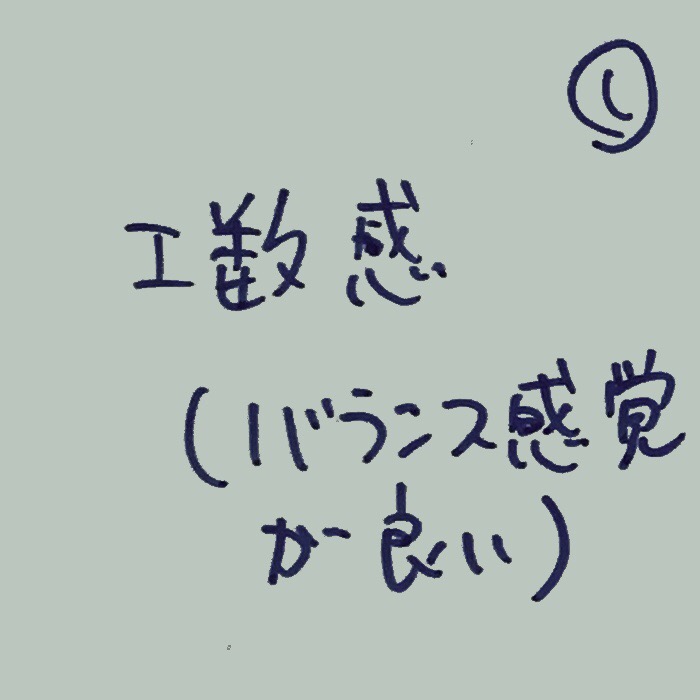 ①
工数感
(バランス感覚
が良い)